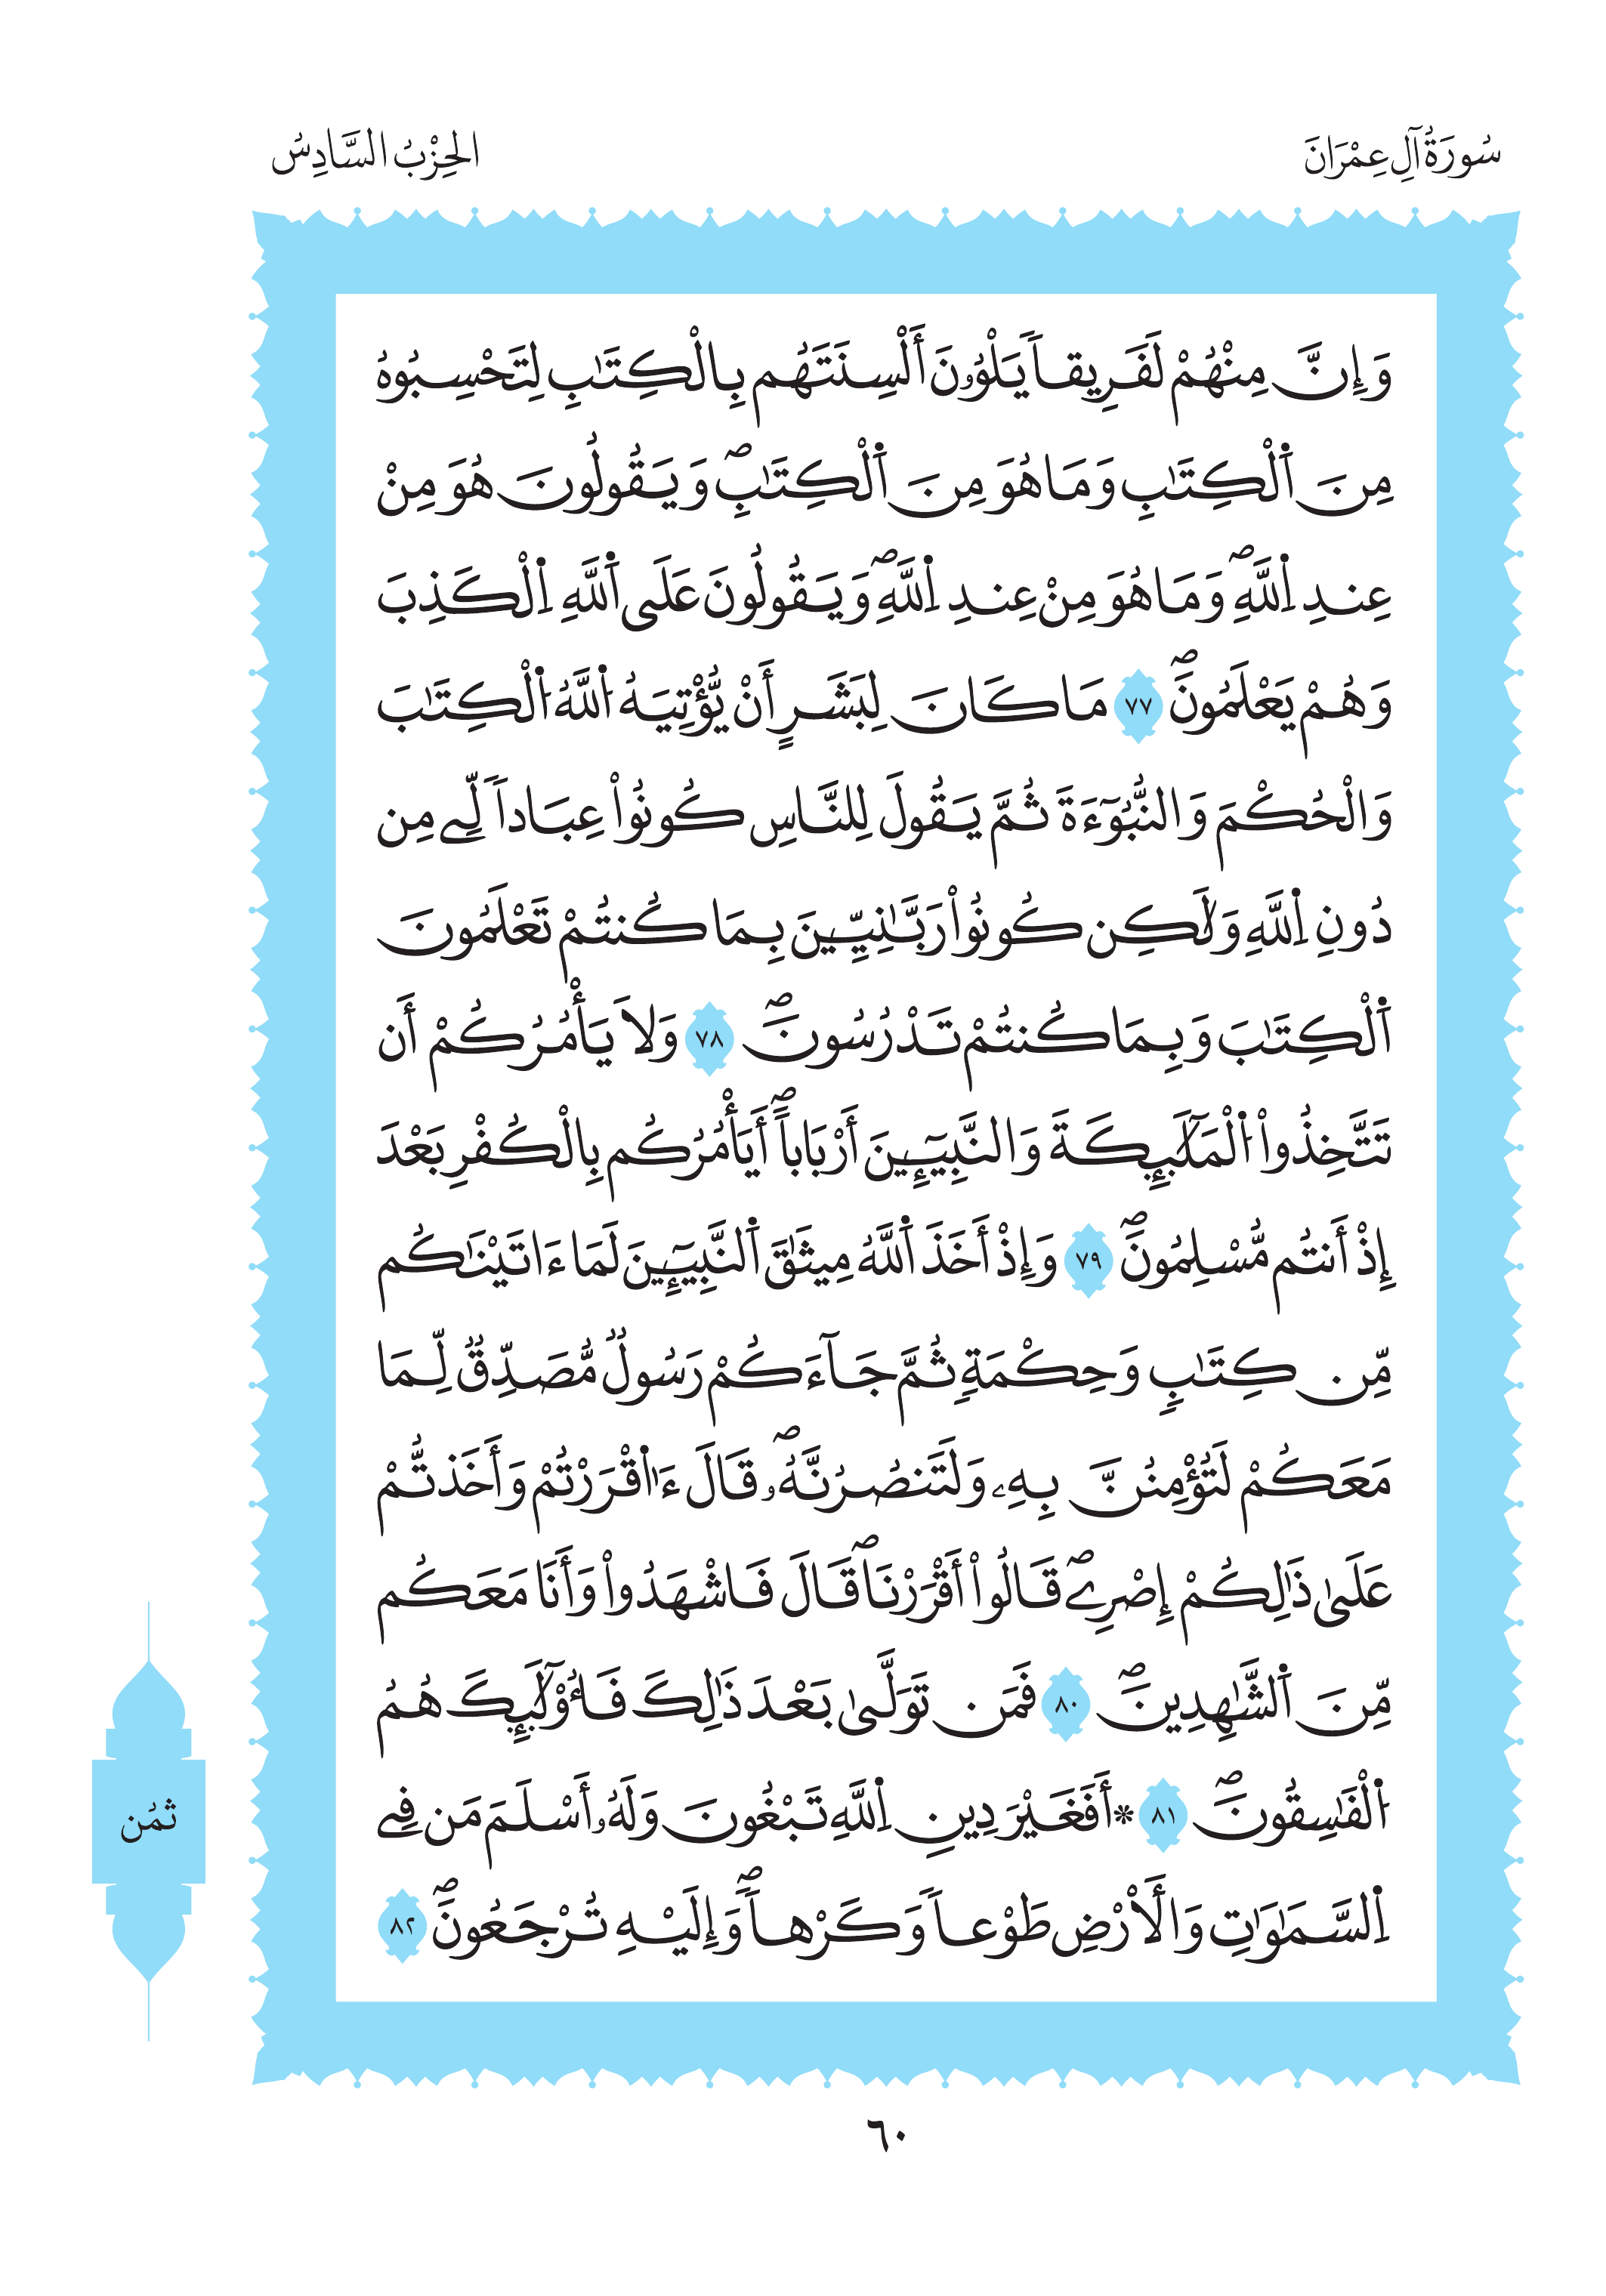 سُورَةُ آلِ عِمْرَانَ
الحِزْبُ السَّادِسُ
وَإِنَّ مِنْهُمْ لَفَرِيقاٗ يَلْوُۥنَ أَلْسِنَتَهُم بِالْكِتَٰبِ لِتَحْسِبُوهُ
مِنَ اَ۬لْكِتَٰبِ وَمَا هُوَ مِنَ اَ۬لْكِتَٰبِۖ وَيَقُولُونَ هُوَ مِنْ
عِندِ اِ۬للَّهِۖ وَمَا هُوَ مِنْ عِندِ اِ۬للَّهِۖ وَيَقُولُونَ عَلَي اَ۬للَّهِ اِ۬لْكَذِبَ
وَهُمْ يَعْلَمُونَۖ ٧٧ مَا كَانَ لِبَشَرٍ أَنْ يُّؤْتِيَهُ اُ۬للَّهُ اُ۬لْكِتَٰبَ
وَالْحُكْمَ وَالنُّبُوٓءَةَ ثُمَّ يَقُولَ لِلنَّاسِ كُونُواْ عِبَاداٗ لِّے مِن
دُونِ اِ۬للَّهِ وَلَٰكِن كُونُواْ رَبَّٰنِيِّـۧنَ بِمَا كُنتُمْ تَعْلَمُونَ
اَ۬لْكِتَٰبَ وَبِمَا كُنتُمْ تَدْرُسُونَۖ ٧٨ وَلَا يَأْمُرُكُمْ أَن
تَتَّخِذُواْ اُ۬لْمَلَٰٓئِكَةَ وَالنَّبِيٓـِٕينَ أَرْبَاباًۖ أَيَأْمُرُكُم بِالْكُفْرِ بَعْدَ
إِذْ أَنتُم مُّسْلِمُونَۖ ٧٩ وَإِذْ أَخَذَ اَ۬للَّهُ مِيثَٰقَ اَ۬لنَّبِيٓـِٕينَ لَمَا ءَاتَيْنَٰكُم
مِّن كِتَٰبٖ وَحِكْمَةٖ ثُمَّ جَآءَكُمْ رَسُولٞ مُّصَدِّقٞ لِّمَا
مَعَكُمْ لَتُؤْمِنُنَّ بِهِۦ وَلَتَنصُرُنَّهُۥۖ قَالَ ءَآ۬قْرَرْتُمْ وَأَخَذتُّمْ
عَلَيٰ ذَٰلِكُمْ إِصْرِےۖ قَالُواْ أَقْرَرْنَاۖ قَالَ فَاشْهَدُواْ وَأَنَا مَعَكُم
مِّنَ اَ۬لشَّٰهِدِينَۖ ٨٠ فَمَن تَوَلَّيٰ بَعْدَ ذَٰلِكَ فَأُوْلَٰٓئِكَ هُمُ
اُ۬لْفَٰسِقُونَۖ ٨١ ۞أَفَغَيْرَ دِينِ اِ۬للَّهِ تَبْغُونَ وَلَهُۥ أَسْلَمَ مَن فِے
اِ۬لسَّمَٰوَٰتِ وَالْأَرْضِ طَوْعاٗ وَكَرْهاٗۖ وَإِلَيْهِ تُرْجَعُونَۖ ٨٢
ثمُن
٦٠